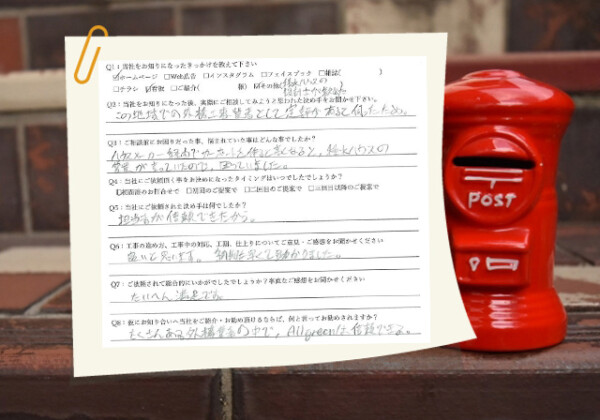 Q1：当社をお知りになったきっかけを教えて下さい
☑ホームページ □Web広告 □インスタグラム □フェイスブック □雑誌（ ）
□チラシ ☑看板 □ご紹介（ 様） ☑その他（
Q2：当社をお知りになった後、実際にご相談してみようと思われた決め手をお聞かせ下さい。
この地域での外構工事業者として定評があると伺ったため。
Q3：ご相談前にお困りだった事、悩まれていた事はどんな事でしたか？
言っていたので、困っていました。
Q4：当社にご依頼頂く事をお決めになったタイミングはいつでしたでしょうか？
□初回のお打合せで □初回のご提案で □二回目のご提案で □三回目以降のご提案で
Q5：当社にご依頼された決め手は何でしたか？
担当者が信頼できたから。
Q6：工事の進め方、工事中の対応、工期、仕上りについてご意見・ご感想をお聞かせください
良いと思います。 対応も早くて助かりました。
Q7：ご依頼されて総合的にいかがでしたでしょうか？率直なご感想をお聞かせください
たいへん満足です。
Q8：仮にお知り合いへ当社をご紹介・お勧め頂けるならば、何と言ってお勧めされますか？
たくさんある外構業者の中で、Allgreenは信頼できる。
POST